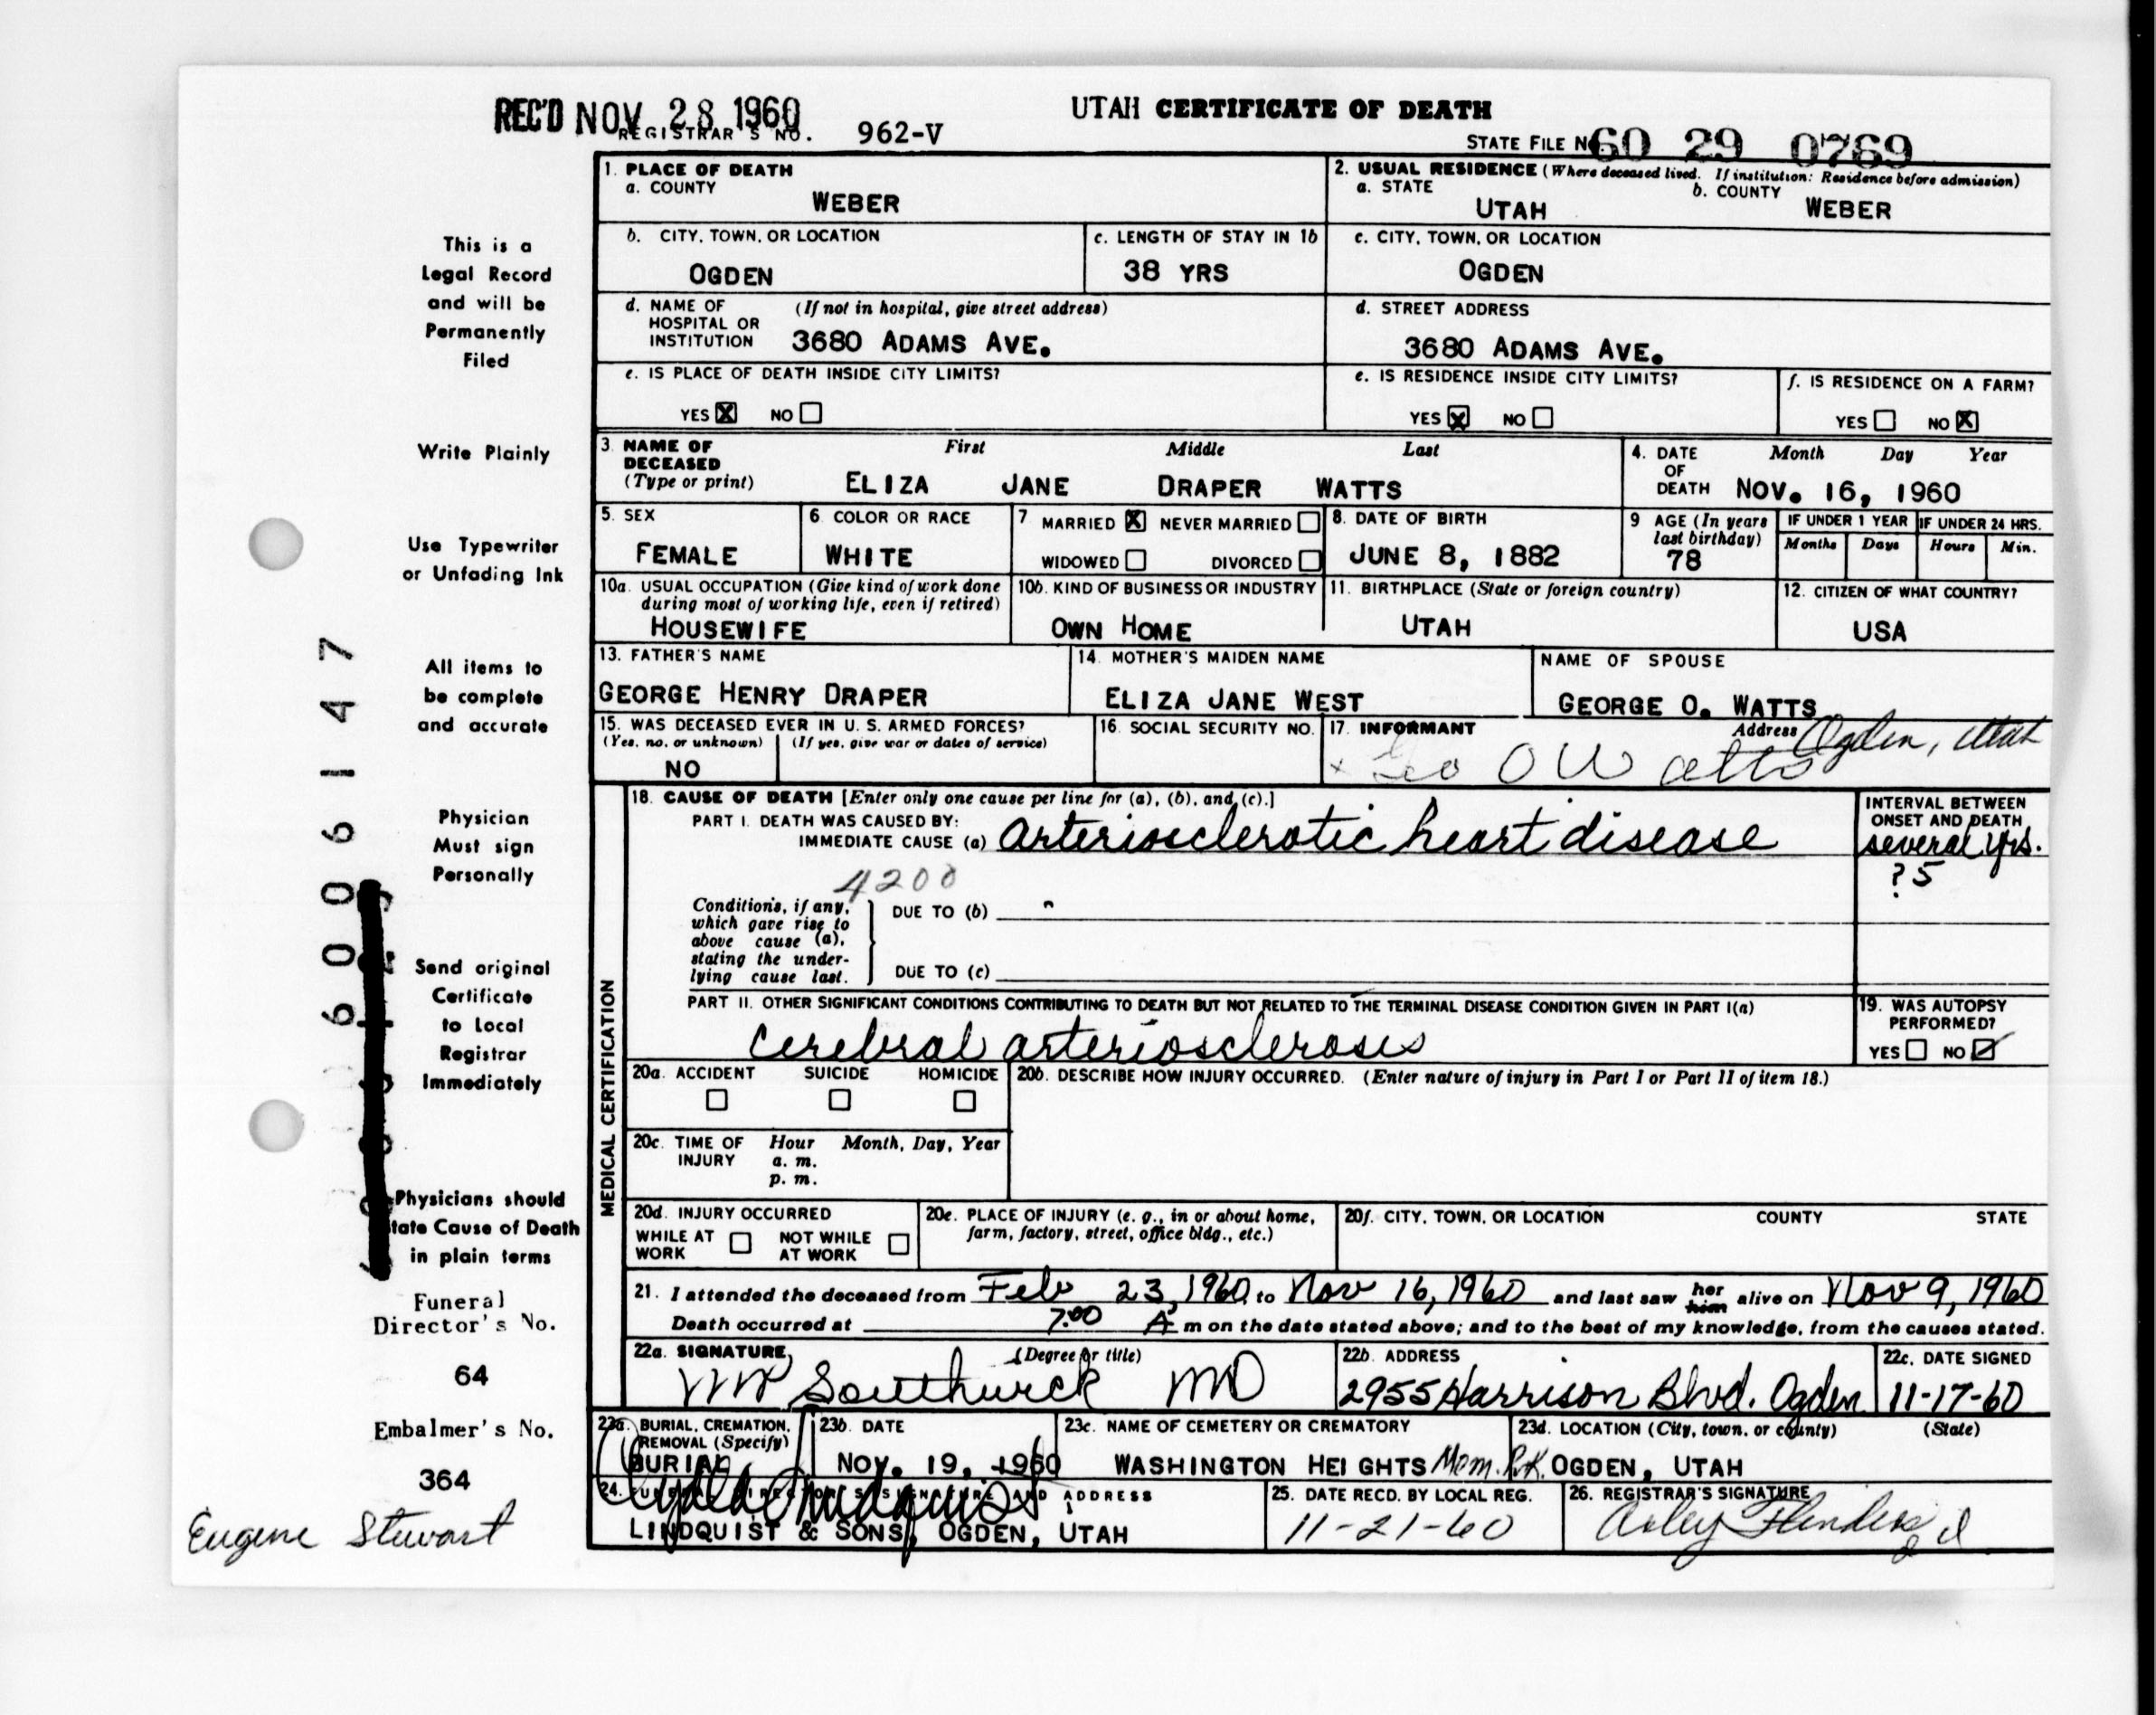 REC'D NOV 28 1960
UTAH CERTIFICATE OF DEATH
REGISTRAR'S NO. 962-V
STATE FILE NO 60 29 0769
1. PLACE OF DEATH
a. COUNTY
WEBER
2. USUAL RESIDENCE (Where deceased lived. If institution: Residence before admission)
a. STATE b. COUNTY
UTAH WEBER
b. CITY, TOWN, OR LOCATION
OGDEN
c. LENGTH OF STAY IN 1b
38 YRS
c. CITY, TOWN, OR LOCATION
OGDEN
d. NAME OF HOSPITAL OR INSTITUTION (If not in hospital, give street address)
3680 ADAMS AVE.
d. STREET ADDRESS
3680 ADAMS AVE.
e. IS PLACE OF DEATH INSIDE CITY LIMITS?
YES X NO
e. IS RESIDENCE INSIDE CITY LIMITS?
YES X NO
f. IS RESIDENCE ON A FARM?
YES NO X
3. NAME OF DECEASED (Type or print)
First Middle Last
ELIZA JANE DRAPER WATTS
4. DATE OF DEATH Month Day Year
NOV. 16, 1960
5. SEX
FEMALE
6. COLOR OR RACE
WHITE
7 MARRIED X NEVER MARRIED
WIDOWED DIVORCED
8. DATE OF BIRTH
JUNE 8, 1882
9 AGE (In years last birthday)
78
IF UNDER 1 YEAR
Months Days
IF UNDER 24 HRS.
Hours Min.
10a. USUAL OCCUPATION (Give kind of work done during most of working life, even if retired)
HOUSEWIFE
10b. KIND OF BUSINESS OR INDUSTRY
OWN HOME
11. BIRTHPLACE (State or foreign country)
UTAH
12. CITIZEN OF WHAT COUNTRY?
USA
13. FATHER'S NAME
GEORGE HENRY DRAPER
14. MOTHER'S MAIDEN NAME
ELIZA JANE WEST
NAME OF SPOUSE
GEORGE O. WATTS
15. WAS DECEASED EVER IN U. S. ARMED FORCES?
(Yes, no, or unknown) (If yes, give war or dates of service)
NO
16. SOCIAL SECURITY NO.
17. INFORMANT Address
x Geo O Watts Ogden, Utah
MEDICAL CERTIFICATION
18. CAUSE OF DEATH [Enter only one cause per line for (a), (b), and (c).]
PART I. DEATH WAS CAUSED BY:
IMMEDIATE CAUSE (a) Arteriosclerotic heart disease
INTERVAL BETWEEN ONSET AND DEATH
several yrs.
? 5
4200
Conditions, if any, which gave rise to above cause (a), stating the underlying cause last.
DUE TO (b)
DUE TO (c)
PART II. OTHER SIGNIFICANT CONDITIONS CONTRIBUTING TO DEATH BUT NOT RELATED TO THE TERMINAL DISEASE CONDITION GIVEN IN PART I(a)
Cerebral arteriosclerosis
19. WAS AUTOPSY PERFORMED?
YES NO
20a. ACCIDENT SUICIDE HOMICIDE
20b. DESCRIBE HOW INJURY OCCURRED. (Enter nature of injury in Part I or Part II of item 18.)
20c. TIME OF INJURY Hour Month, Day, Year
a. m.
p. m.
20d. INJURY OCCURRED
WHILE AT WORK NOT WHILE AT WORK
20e. PLACE OF INJURY (e. g., in or about home, farm, factory, street, office bldg., etc.)
20f. CITY, TOWN, OR LOCATION COUNTY STATE
21. I attended the deceased from Feb 23, 1960, to Nov 16, 1960 and last saw her him alive on Nov 9, 1960
Death occurred at 7:00 A m on the date stated above; and to the best of my knowledge, from the causes stated.
22a. SIGNATURE (Degree or title)
Southwick MD
22b. ADDRESS
2955 Harrison Blvd. Ogden
22c. DATE SIGNED
11-17-60
23a. BURIAL, CREMATION, REMOVAL (Specify)
BURIAL
23b. DATE
NOV. 19, 1960
23c. NAME OF CEMETERY OR CREMATORY
WASHINGTON HEIGHTS Mem. Prk.
23d. LOCATION (City, town, or county) (State)
OGDEN, UTAH
24. FUNERAL DIRECTOR'S SIGNATURE AND ADDRESS
LINDQUIST & SONS, OGDEN, UTAH
25. DATE RECD. BY LOCAL REG.
11-21-60
26. REGISTRAR'S SIGNATURE
This is a
Legal Record
and will be
Permanently
Filed
Write Plainly
Use Typewriter
or Unfading Ink
All items to
be complete
and accurate
Physician
Must sign
Personally
Send original
Certificate
to Local
Registrar
Immediately
Physicians should
State Cause of Death
in plain terms
Funeral
Director's No.
64
Embalmer's No.
364
Eugene Stewart
60 06147